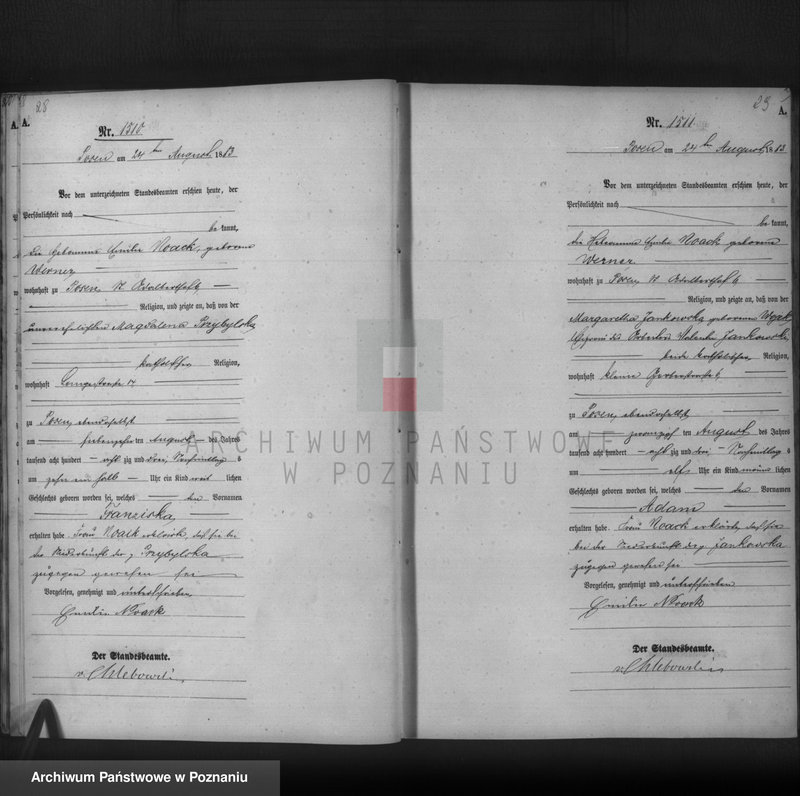 28
A. A.
Nr. 1510
Posen am 24ten August 1883
Vor dem unterzeichneten Standesbeamten erschien heute, der
Persönlichkeit nach
be kannt,
die Hebamme Emilie Noack, geborene
Werner
wohnhaft zu Posen, 17
Religion, und zeigte an, daß von der
unverehelichten Magdalena Przybylska
katholischer Religion,
wohnhaft Langestrasse 14
zu Posen, ebendaselbst
am siebenzehnten August des Jahres
tausend acht hundert acht zig und drei, Vormittag s
um zehn ein halb Uhr ein Kind weib lichen
Geschlechts geboren worden sei, welches den Vornamen
Franziska
erhalten habe. Frau Noack erklärte, daß sie bei
der Niederkunft der p. Przybylska
zugegen gewesen sei
Vorgelesen, genehmigt und unterschrieben
Emilie Noack
Der Standesbeamte.
v. Chlebowski
29
A.
Nr. 1511
Posen am 24ten August 1883
Vor dem unterzeichneten Standesbeamten erschien heute, der
Persönlichkeit nach
be kannt,
die Hebamme Emilie Noack geborene
Werner
wohnhaft zu Posen 17
Religion, und zeigte an, daß von der
Margaretha Jankowska geborenen
Ehefrau des Arbeiters Valentin Jankowski,
beide katholischer Religion,
wohnhaft kleine Gerberstrasse 6
zu Posen, ebendaselbst
am zwanzigsten August des Jahres
tausend acht hundert acht zig und drei, Vormittag s
um elf Uhr ein Kind männ lichen
Geschlechts geboren worden sei, welches den Vornamen
Adam
erhalten habe. Frau Noack erklärte, daß sie
bei der Niederkunft der p. Jankowska
zugegen gewesen sei
Vorgelesen, genehmigt und unterschrieben
Emilie Noack
Der Standesbeamte.
v. Chlebowski
ARCHIWUM PAŃSTWOWE
W POZNANIU
Archiwum Państwowe w Poznaniu